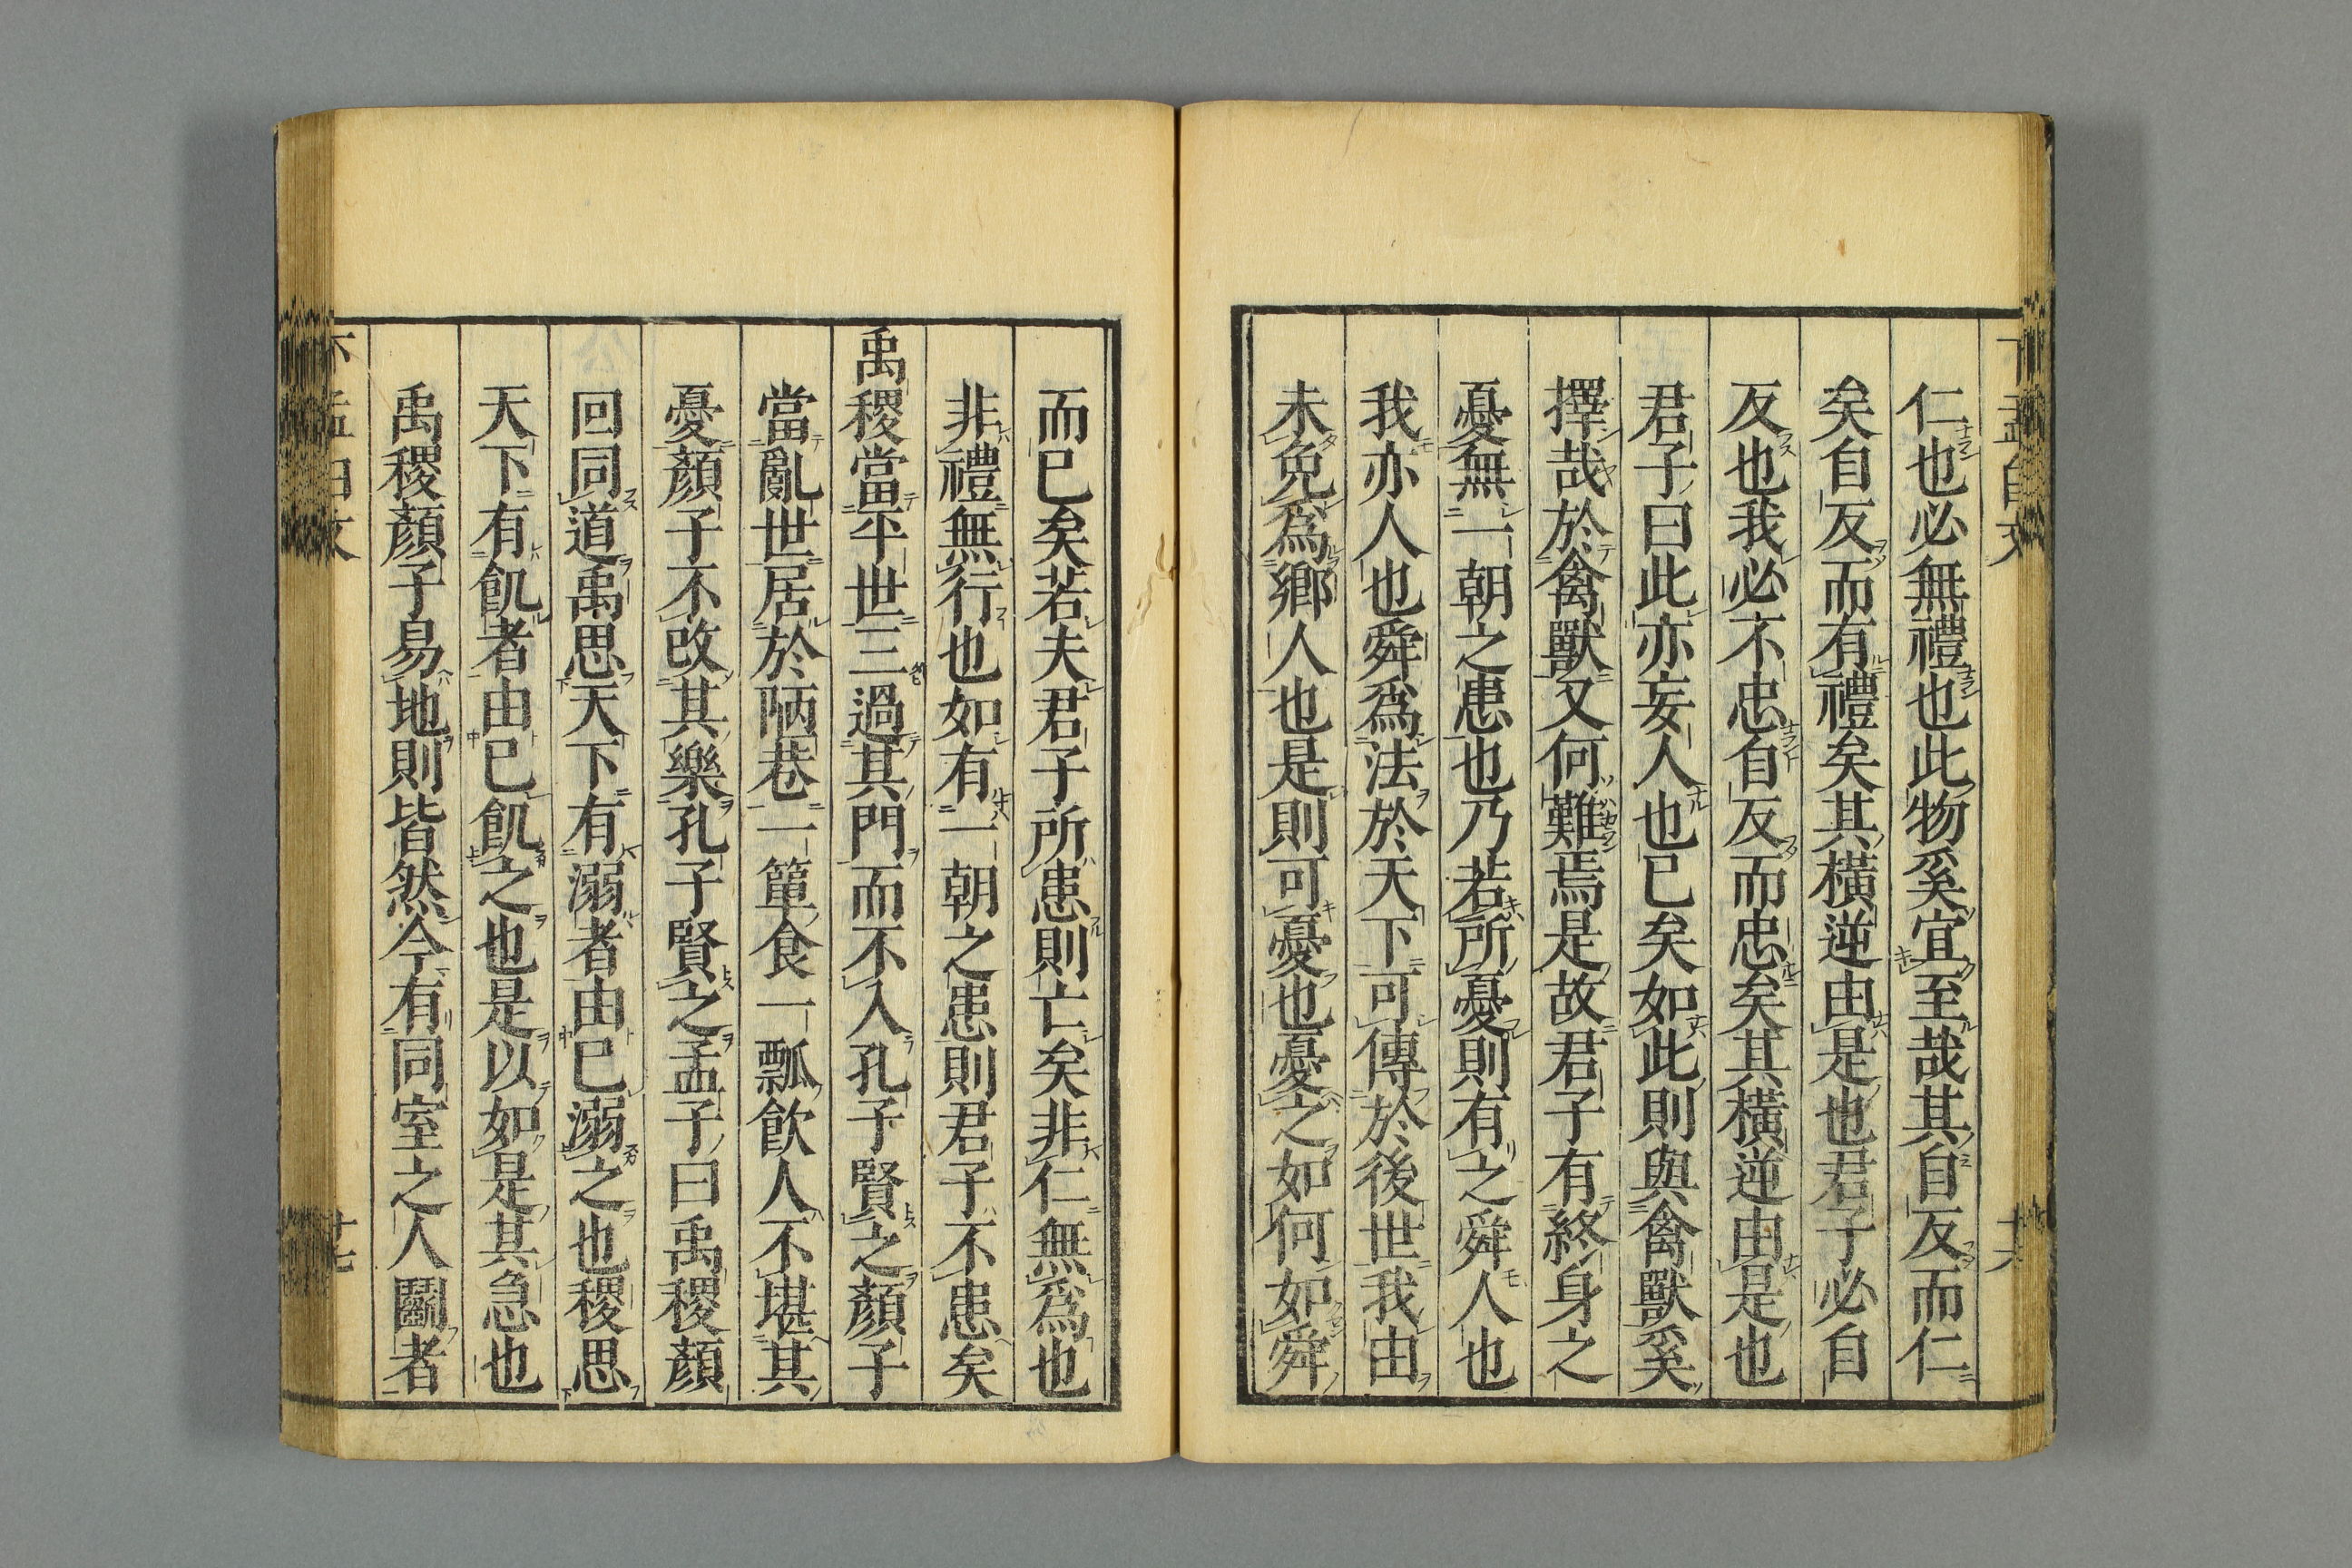 仁也必無禮也此物奚宜至哉其自反而仁
矣自反而有禮矣其橫逆由是也君子必自
反也我必不忠自反而忠矣其橫逆由是也
君子曰此亦妄人也已矣如此則與禽獸奚
擇哉於禽獸又何難焉是故君子有終身之
憂無一朝之患也乃若所憂則有之舜人也
我亦人也舜爲法於天下可傳於後世我由
未免爲鄕人也是則可憂也憂之如何如舜
而已矣若夫君子所患則亡矣非仁無爲也
非禮無行也如有一朝之患則君子不患矣
禹稷當平世三過其門而不入孔子賢之顏子
當亂世居於陋巷一簞食一瓢飮人不堪其
憂顏子不改其樂孔子賢之孟子曰禹稷顏
回同道禹思天下有溺者由已溺之也稷思
天下有飢者由已飢之也是以如是其急也
禹稷顏子易地則皆然今有同室之人鬪者